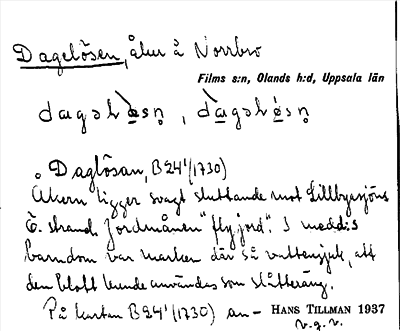 Dagelösen, åker å Norrbro
Films s:n, Olands h:d, Uppsala län
Daglösan, B24¹ (1730)
Åkern ligger svagt sluttande mot Lillbyasjöns
Ö. strand. Jordmånen "flyjord". I medd:s
barndom var marken där så vattensjuk, att
den blott kunde användas som slåtteräng.
På kartan B24¹ (1730) an-
HANS TILLMAN 1937
v.g.v.